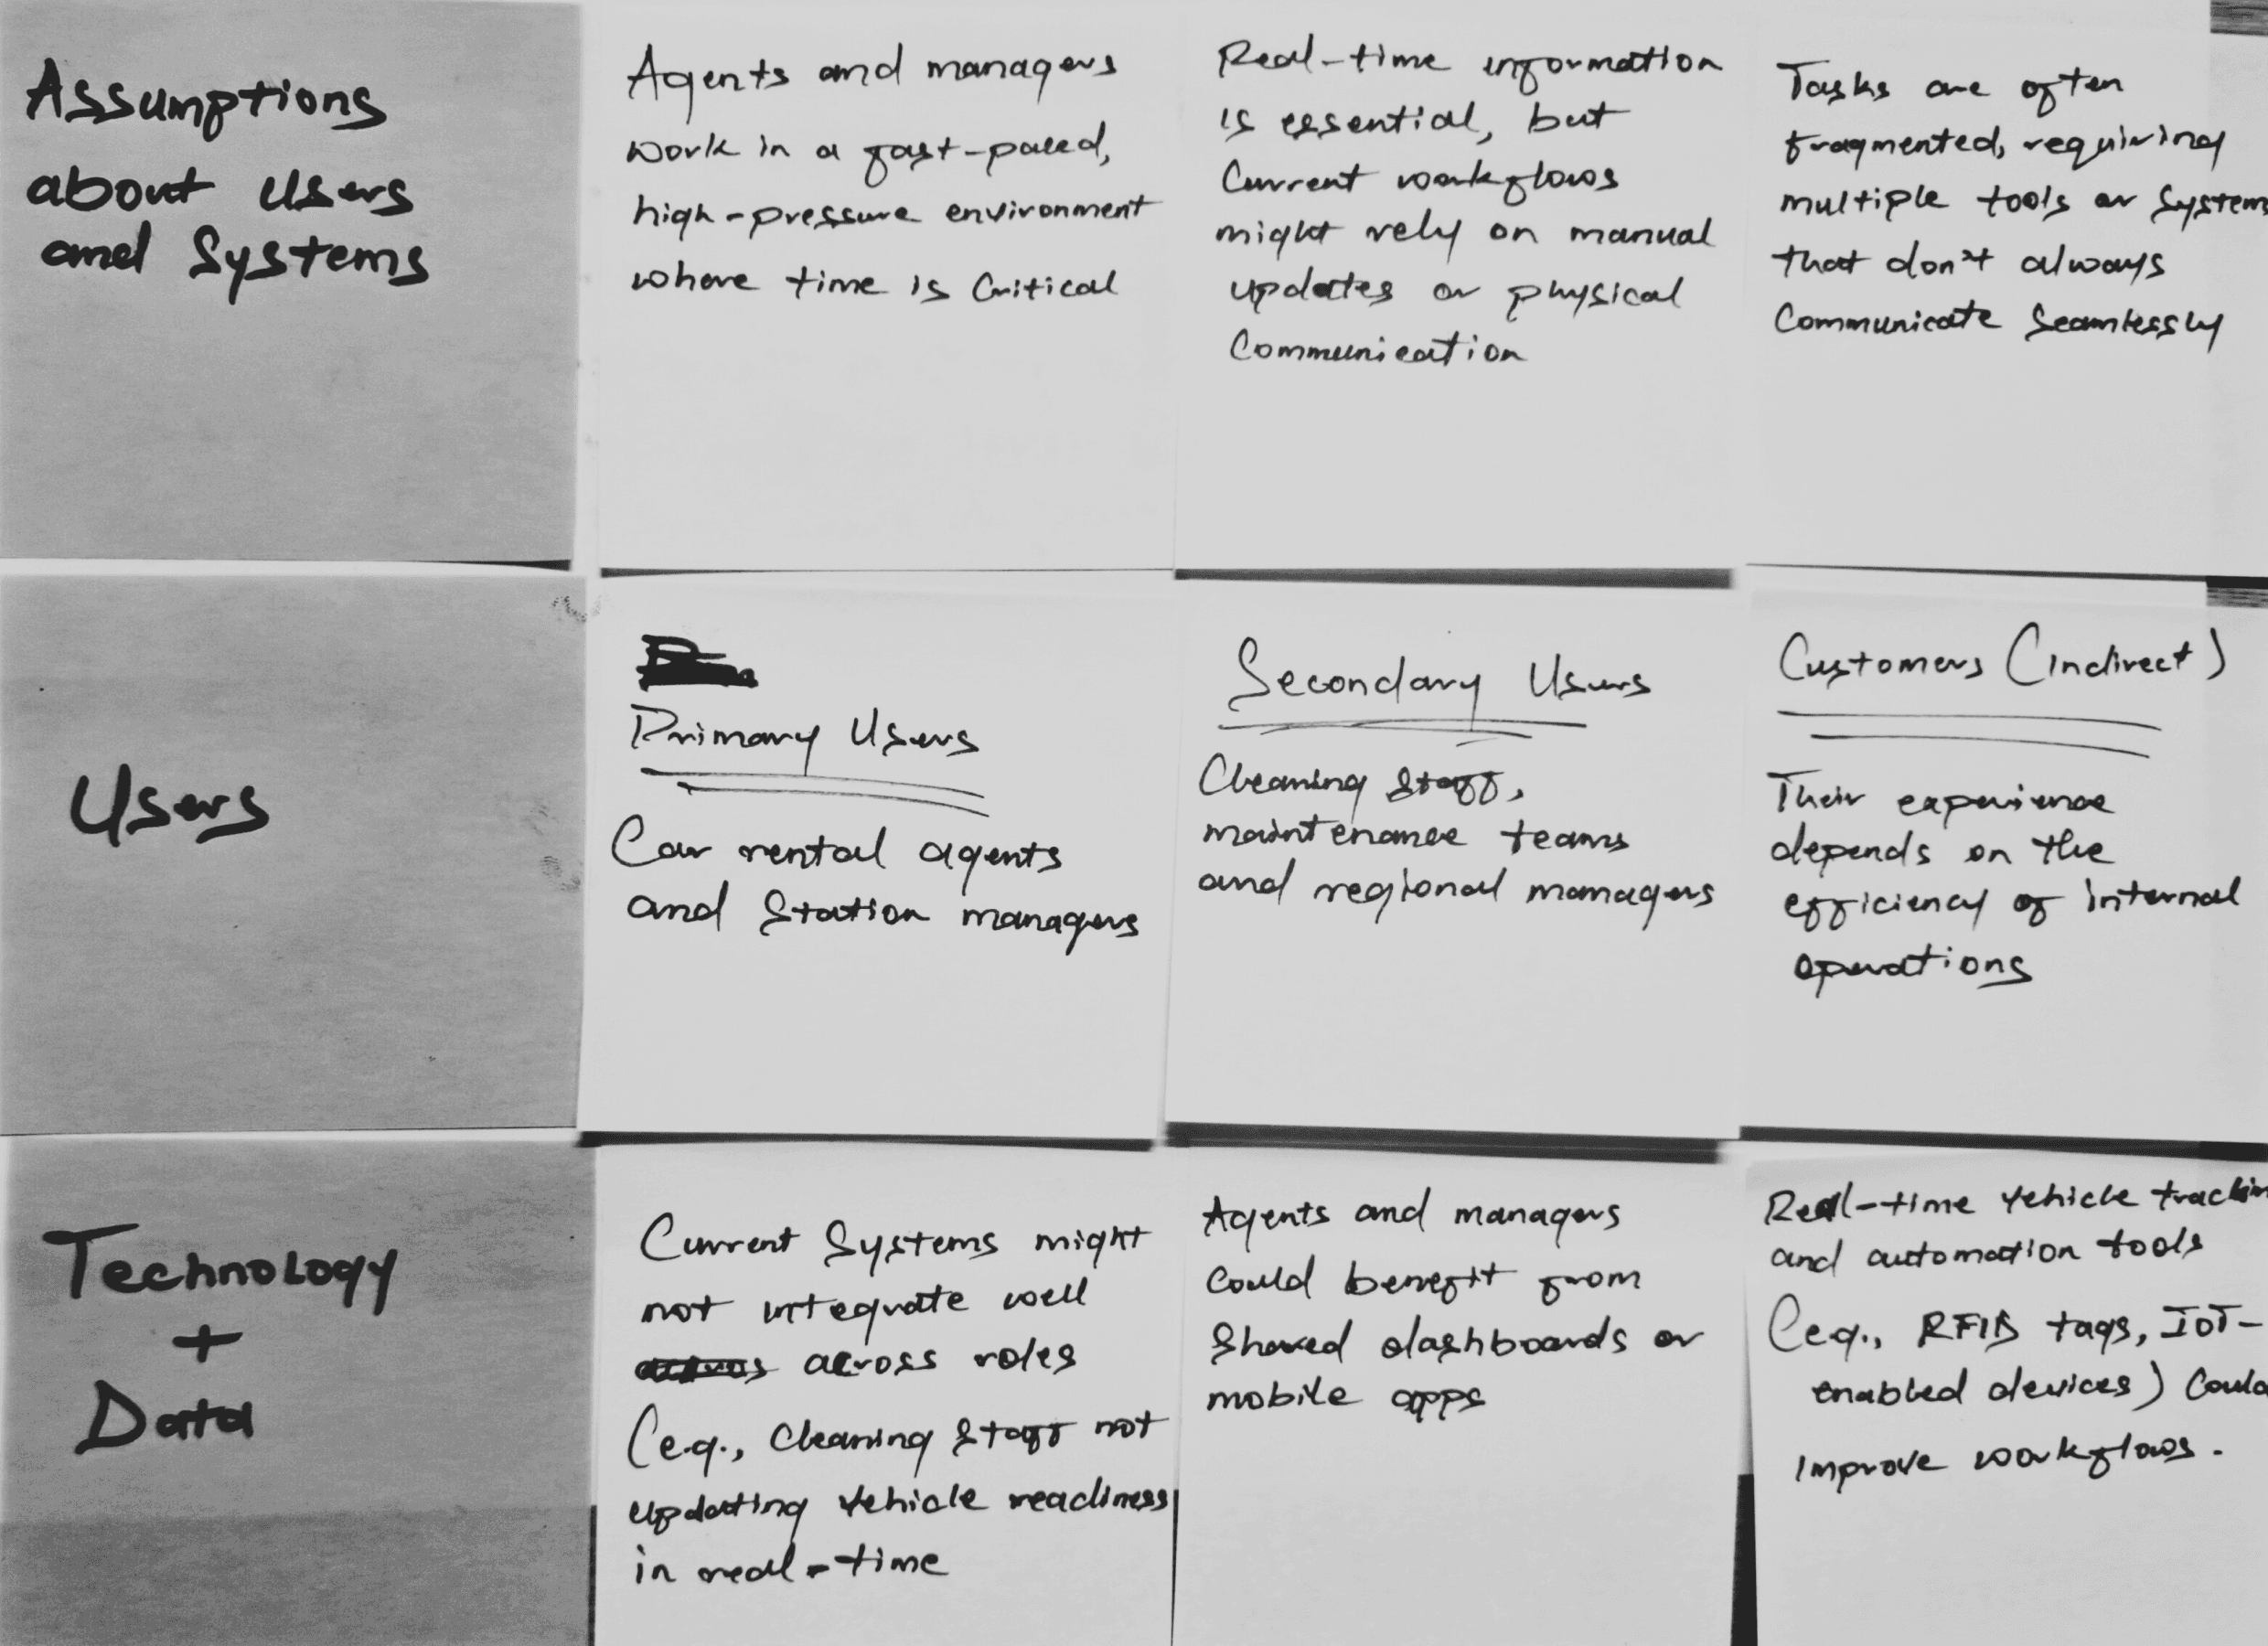 Assumptions
about Users
and Systems
Agents and managers
work in a fast-paced,
high-pressure environment
where time is Critical
Real-time information
is essential, but
Current workflows
might rely on manual
updates or physical
Communication
Tasks are often
fragmented, requiring
multiple tools or Systems
that don't always
Communicate Seamlessly
Users
Primary Users
Car rental agents
and Station managers
Secondary Users
Cleaning Staff,
maintenance teams
and regional managers
Customers (indirect)
Their experience
depends on the
efficiency of internal
operations
Technology
+
Data
Current Systems might
not integrate well
across roles
(e.g., Cleaning Staff not
updating vehicle readiness
in real-time
Agents and managers
Could benefit from
Shared dashboards or
mobile apps
Real-time vehicle trackin
and automation tools
(e.g., RFID tags, IoT-
enabled devices) Could
improve workflows.